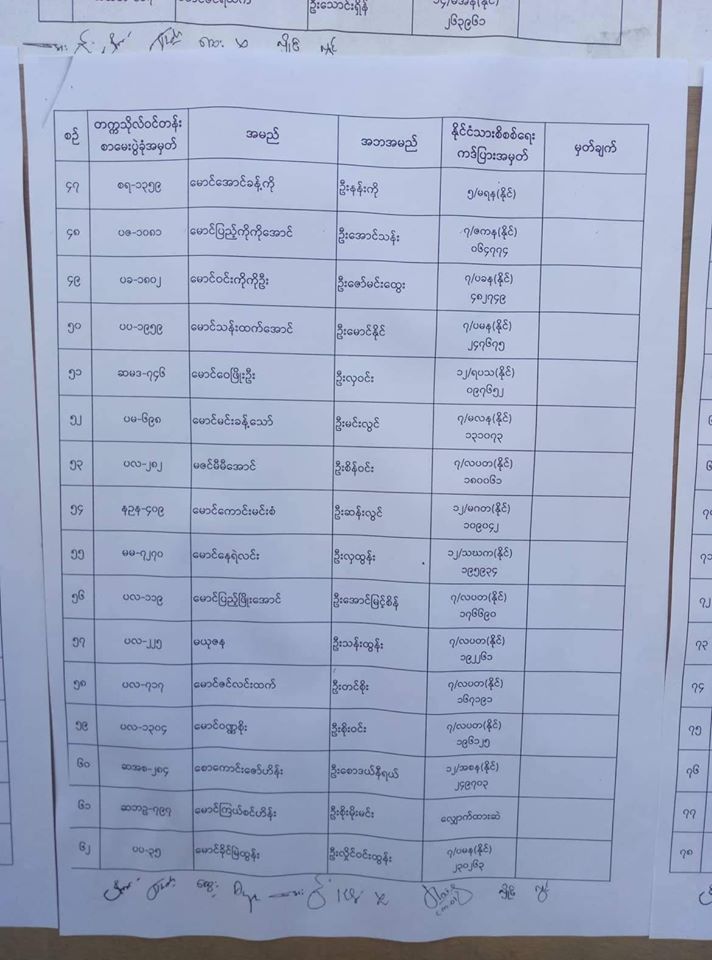 ဦးသောင်းရှိန်
၂၆၃၉၆၁
စဉ် တက္ကသိုလ်ဝင်တန်း စာမေးပွဲခုံအမှတ် အမည် အဘအမည် နိုင်ငံသားစိစစ်ရေး ကဒ်ပြားအမှတ် မှတ်ချက်
၄၇ စရ-၁၃၅၉ မောင်အောင်ခန့်ကို ဦးနန်းကို ၅/မရန(နိုင်)
၄၈ ပဇ-၁၀၈၁ မောင်ပြည့်ကိုကိုအောင် ဦးအောင်သန်း ၇/ဇကန(နိုင်) ၀၆၄၇၇၄
၄၉ ပခ-၁၈၀၂ မောင်ဝင်းကိုကိုဦး ဦးဇော်မင်းထွေး ၇/ပခန(နိုင်) ၄၈၂၇၄၉
၅၀ ပပ-၁၉၅၉ မောင်သန်းထက်အောင် ဦးမောင်နိုင် ၇/ပမန(နိုင်) ၂၄၇၆၇၅
၅၁ ဆမဒ-၇၄၆ မောင်ဝေဖြိုးဦး ဦးလှဝင်း ၁၂/ရပသ(နိုင်) ၀၉၇၆၅၂
၅၂ ပမ-၆၉၈ မောင်မင်းခန့်သော် ဦးမင်းလွင် ၇/မလန(နိုင်) ၁၃၁၀၇၃
၅၃ ပလ-၂၈၂ မဇင်မီမီအောင် ဦးစိန်ဝင်း ၇/လပတ(နိုင်) ၁၈၀၀၆၁
၅၄ ၄၀၉ မောင်ကောင်းမင်းစံ ဦးဆန်းလွင် ၁၂/မဂတ(နိုင်) ၁၀၉၀၄၂
၅၅ မမ-၇၂၇၀ မောင်နေရဲလင်း ဦးလှထွန်း ၁၂/သဃက(နိုင်) ၁၉၅၉၃၄
၅၆ ပလ-၁၁၉ မောင်ပြည့်ဖြိုးအောင် ဦးအောင်မြင့်စိန် ၇/လပတ(နိုင်) ၁၇၆၆၉၀
၅၇ ပလ-၂၂၅ မယုဇန ဦးသန်းထွန်း ၇/လပတ(နိုင်) ၁၉၂၂၆၁
၅၈ ပလ-၇၁၇ မောင်ဇင်လင်းထက် ဦးတင်စိုး ၇/လပတ(နိုင်) ၁၆၇၁၉၁
၅၉ ပလ-၁၃၀၄ မောင်ဝဏ္ဏစိုး ဦးစိုးဝင်း ၇/လပတ(နိုင်) ၁၉၆၁၂၅
၆၀ ဆအစ-၂၈၄ စောကောင်းဇော်ဟိန်း ဦးစောဒယ်နီရယ် ၁၂/အစန(နိုင်) ၂၄၉၇၀၃
၆၁ ဆဘဥ-၇၉၇ မောင်ကြယ်စင်ဟိန်း ဦးစိုးမိုးမင်း လျှောက်ထားဆဲ
၆၂ ပပ-၃၅ မောင်ခိုင်မြဲထွန်း ဦးလှိုင်ဝင်းထွန်း ၇/ပမန(နိုင်) ၂၃၀၂၆၃
၇၃
၇၄
၇၅
၇၆
၇၇
၇၈